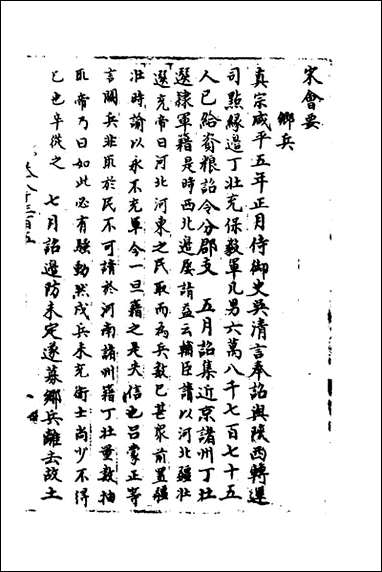 宋會要
鄉兵
真宗咸平五年正月侍御史吳清言奉詔與陝西轉運
司點緣邊丁壯充保毅軍凡男六萬八千七百七十五
人已給資粮詔令分郡支 五月詔集近京諸州丁壯
選隸軍籍是時西北邊屢請益云輔臣請以河北彊壯
選充帝曰河北河東之民取而為兵數已甚眾前置彊
壯時諭以永不充軍今一旦籍之是失信也呂蒙正等
言關兵非取於民不可請於河南諸州籍丁壯量數抽
取帝乃曰如此必有騷動然戍兵未充衛士尚少不得
已也卒從之 七月詔邊防未定遂募鄉兵離去故土